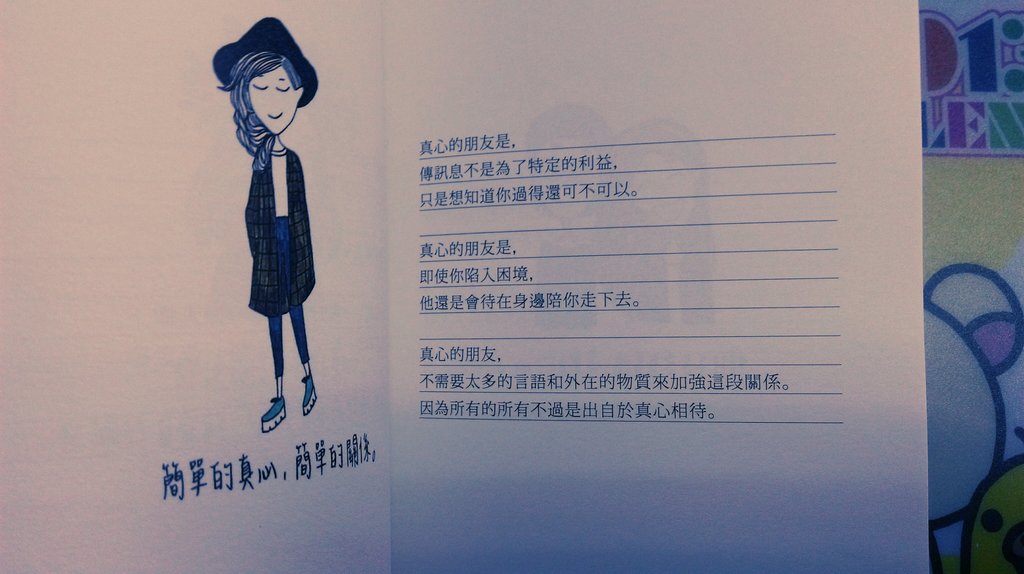 簡單的真心，簡單的關係。
真心的朋友是，
傳訊息不是為了特定的利益，
只是想知道你過得還可不可以。
真心的朋友是，
即使你陷入困境，
他還是會待在身邊陪你走下去。
真心的朋友，
不需要太多的言語和外在的物質來加強這段關係。
因為所有的所有不過是出自於真心相待。